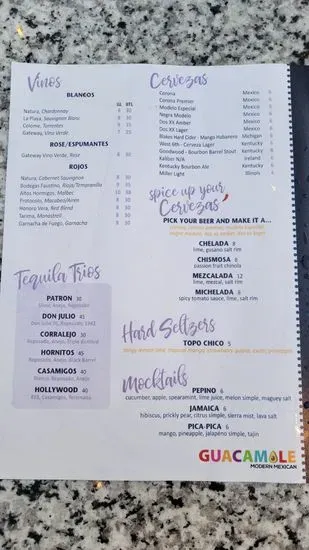 Vinos
BLANCOS
GL BTL
Natura, Chardonnay 8 30
La Playa, Sauvignon Blanc 8 30
Colome, Torrontes 9 35
Gateway, Vino Verde 7 25
ROSE/ESPUMANTES
Gateway Vino Verde, Rose 8 30
ROJOS
Natura, Cabernet Sauvignon 8 30
Bodegas Faustino, Rioja/Tempranilla 9 35
Años Hormigos, Malbec
Protocolo, Macabeo/Airen 8 30
Honoro Vera, Red Blend 8 30
Tarima, Monastrell
Garnacha de Fuego, Garnacha
Tequila Trios
PATRON 30
Silver, Anejo, Reposado
DON JULIO 45
Don Julio 70, Reposado, 1942
CORRALEJO 30
Reposado, Anejo, Triple Distilled
HORNITOS 45
Reposado, Anejo, Black Barrel
CASAMIGOS 40
Blanco, Reposado, Anejo
HOLLYWOOD 40
818, Casamigos, Teremana
Cervezas
Corona Mexico
Corona Premier Mexico
Modelo Especial Mexico
Negra Modelo Mexico
Dos XX Amber Mexico
Dos XX Lager Mexico
Blakes Hard Cider - Mango Habanero Michigan
West 6th - Cerveza Lager Kentucky
Goodwood - Bourbon Barrel Stout Kentucky
Kaliber N/A Ireland
Kentucky Bourbon Ale Kentucky
Miller Light Illinois
spice up your
Cervezas
PICK YOUR BEER AND MAKE IT A...
CHELADA 8
lime, gusano salt rim
CHISMOSA 8
passion fruit chinola
MEZCALADA 12
lime, mezcal, salt rim
MICHELADA 8
spicy tomato sauce, lime, salt rim
Hard Seltzers
TOPO CHICO 5
tangy lemon lime, tropical mango, strawberry guava, exotic pineapple
Mocktails
PEPINO 6
cucumber, apple, spearmint, lime juice, melon simple, maguey salt
JAMAICA 6
hibiscus, prickly pear, citrus simple, sierra mist, lava salt
PICA-PICA 6
mango, pineapple, jalapeño simple, tajin
GUACAMOLE
MODERN MEXICAN